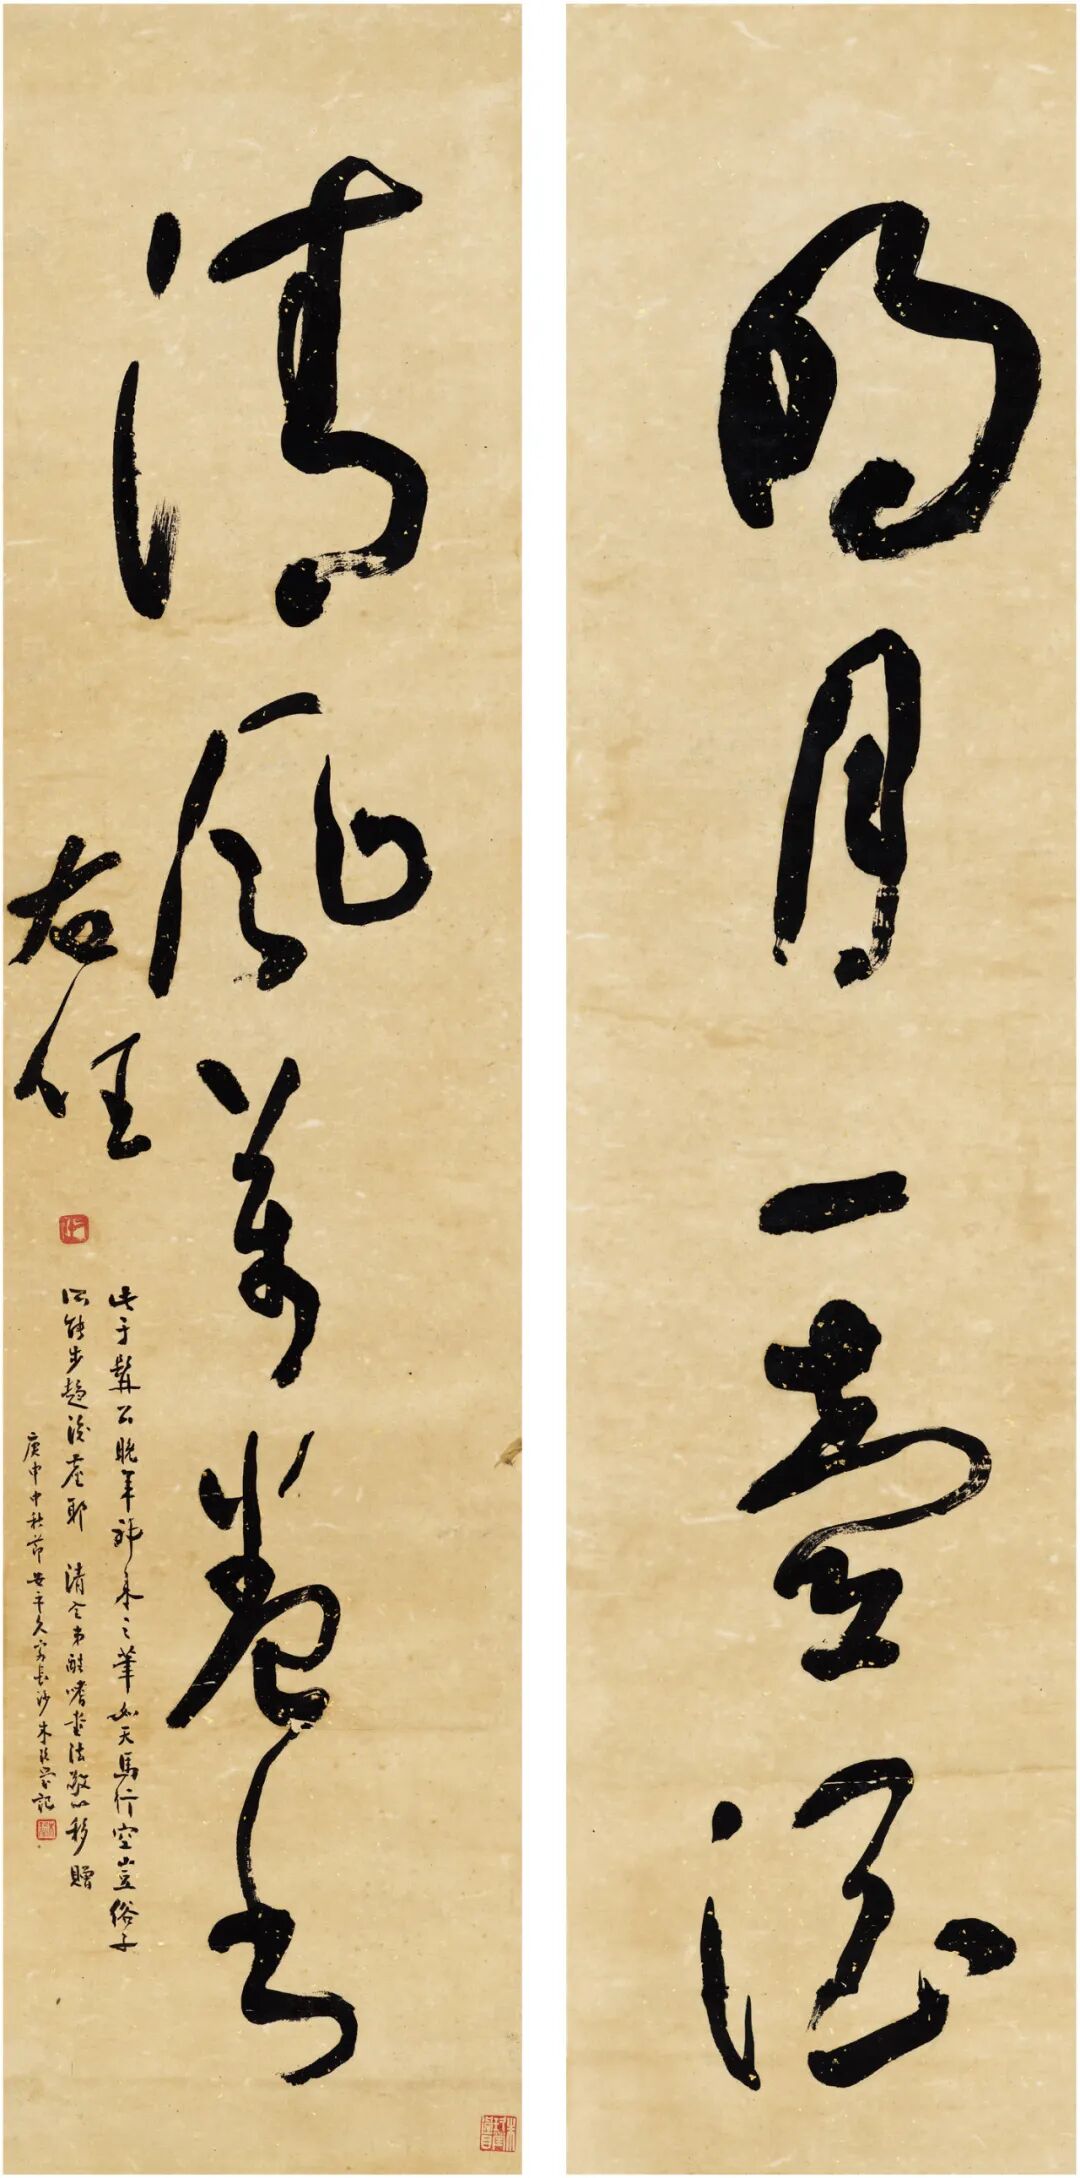 明月一壺酒
清風萬卷書
右任
此于髯公晚年神來之筆如天馬行空豈俗子
所能步趨後塵耶 清弟酷嗜書法敬以移贈
庚申中秋節安平久客長沙朱玖瑩記